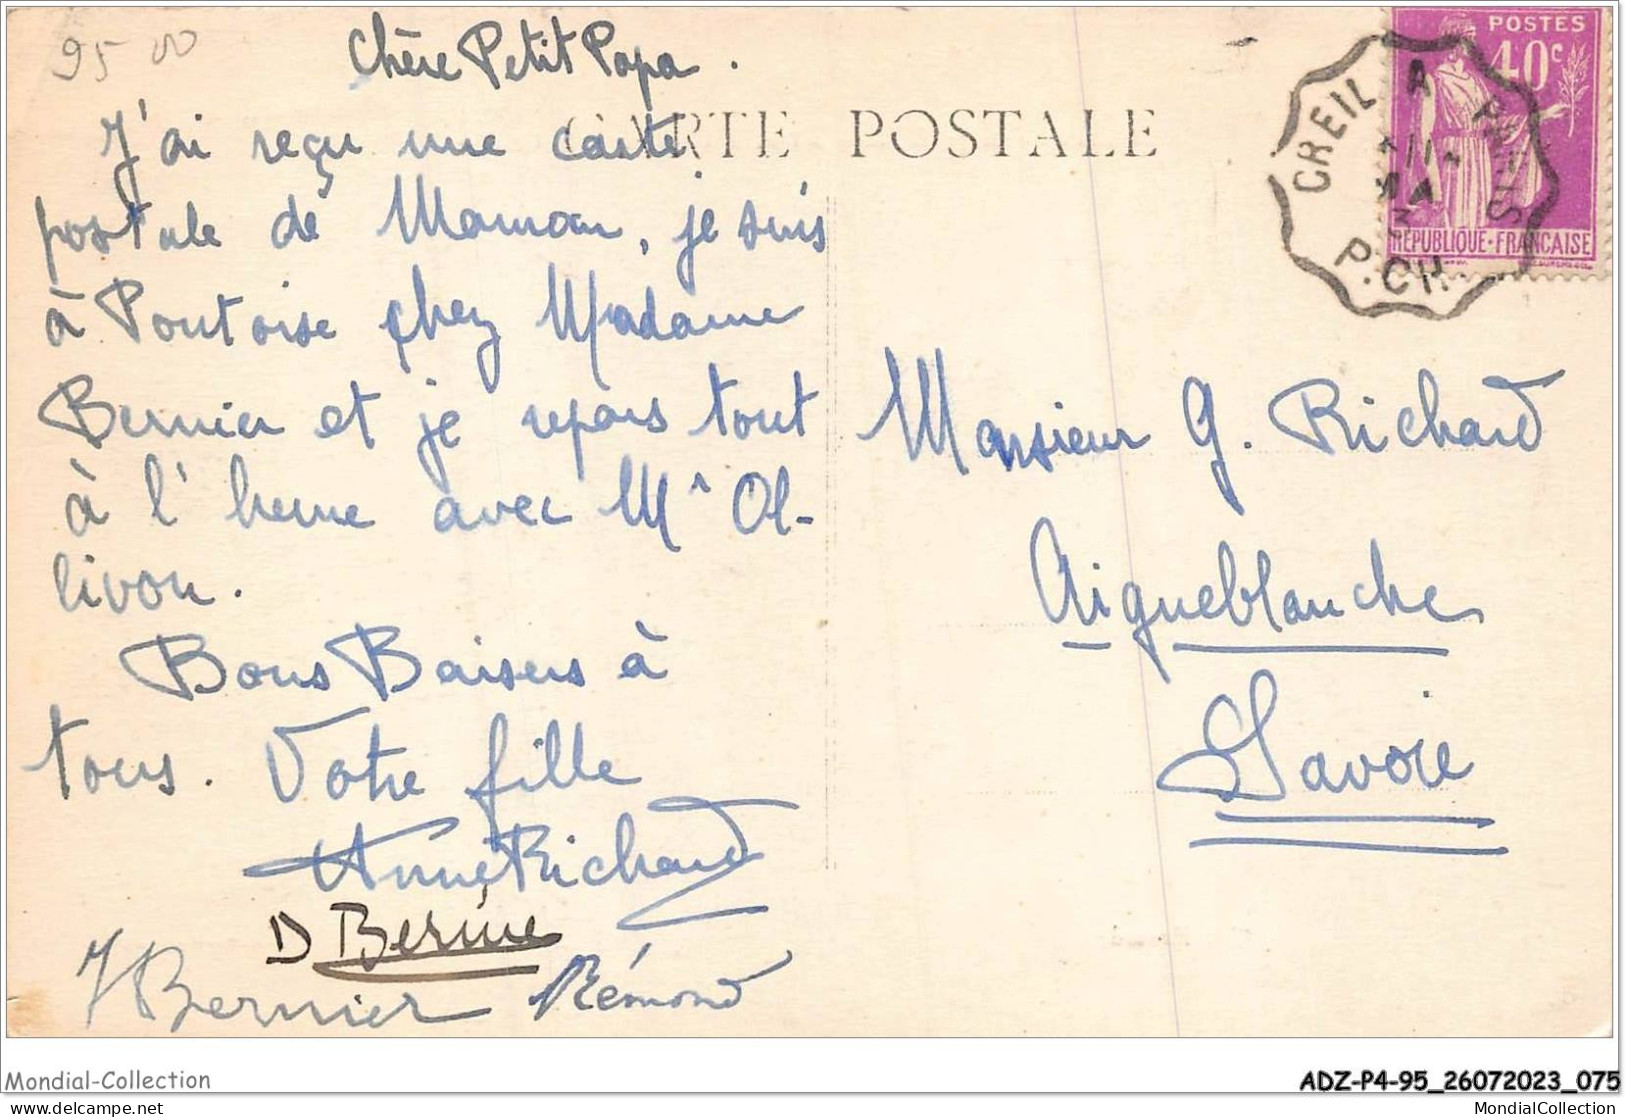 95 00
Chère Petit Papa.
CARTE POSTALE
J'ai reçu une carte
postale de Maman, je suis
à Pontoise chez Madame
Bernier et je repars tout
à l'heure avec Mr Ol-
livon.
Bons Baisers à
tous. Votre fille
Anne Richard
D Bernie
J Bernier Rémond
POSTES
40c
REPUBLIQUE-FRANCAISE
CREIL A PARIS
P.CH.
Monsieur G. Richard
Aigueblanche
Savoie
Mondial-Collection
ADZ-P4-95_26072023_075
www.delcampe.net
MondialCollection